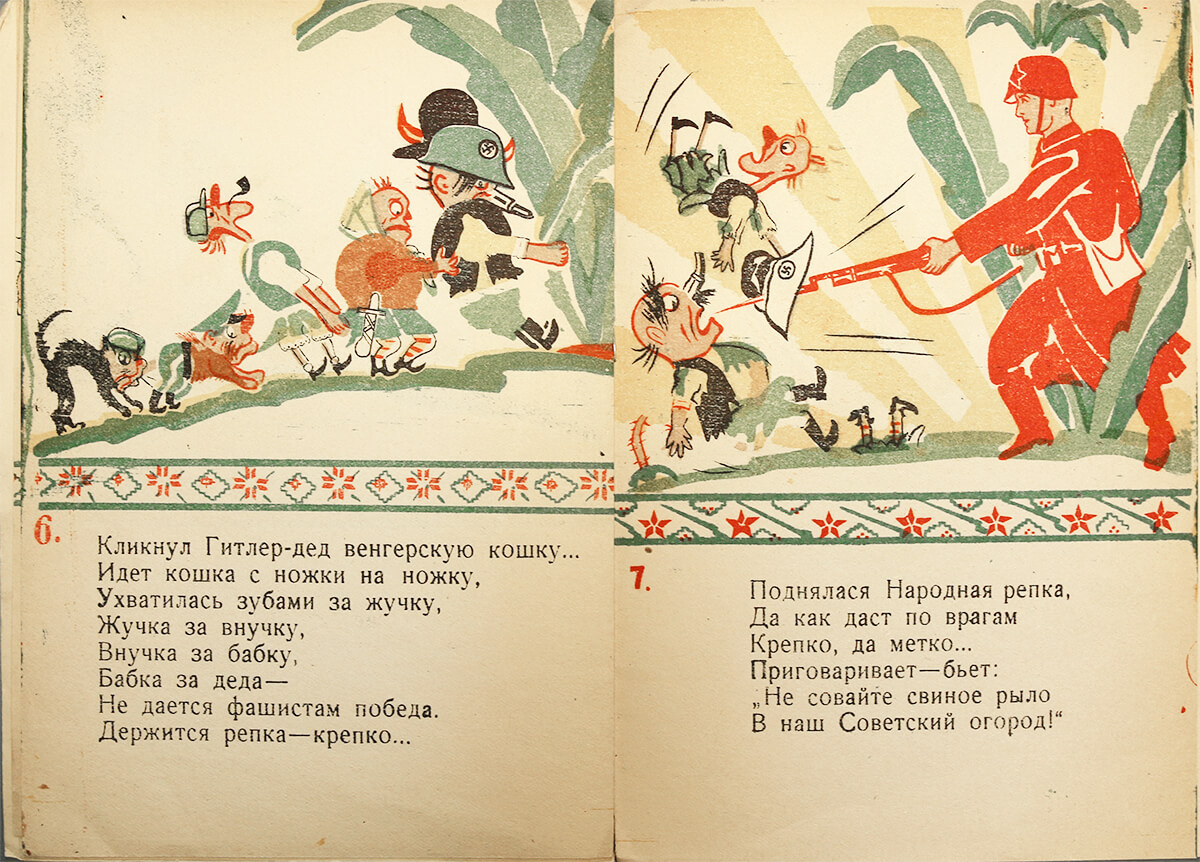 6.
Кликнул Гитлер-дед венгерскую кошку...
Идет кошка с ножки на ножку,
Ухватилась зубами за жучку,
Жучка за внучку,
Внучка за бабку,
Бабка за деда—
Не дается фашистам победа.
Держится репка—крепко...
7.
Поднялася Народная репка,
Да как даст по врагам
Крепко, да метко...
Приговаривает—бьет:
„Не совайте свиное рыло
В наш Советский огород!“